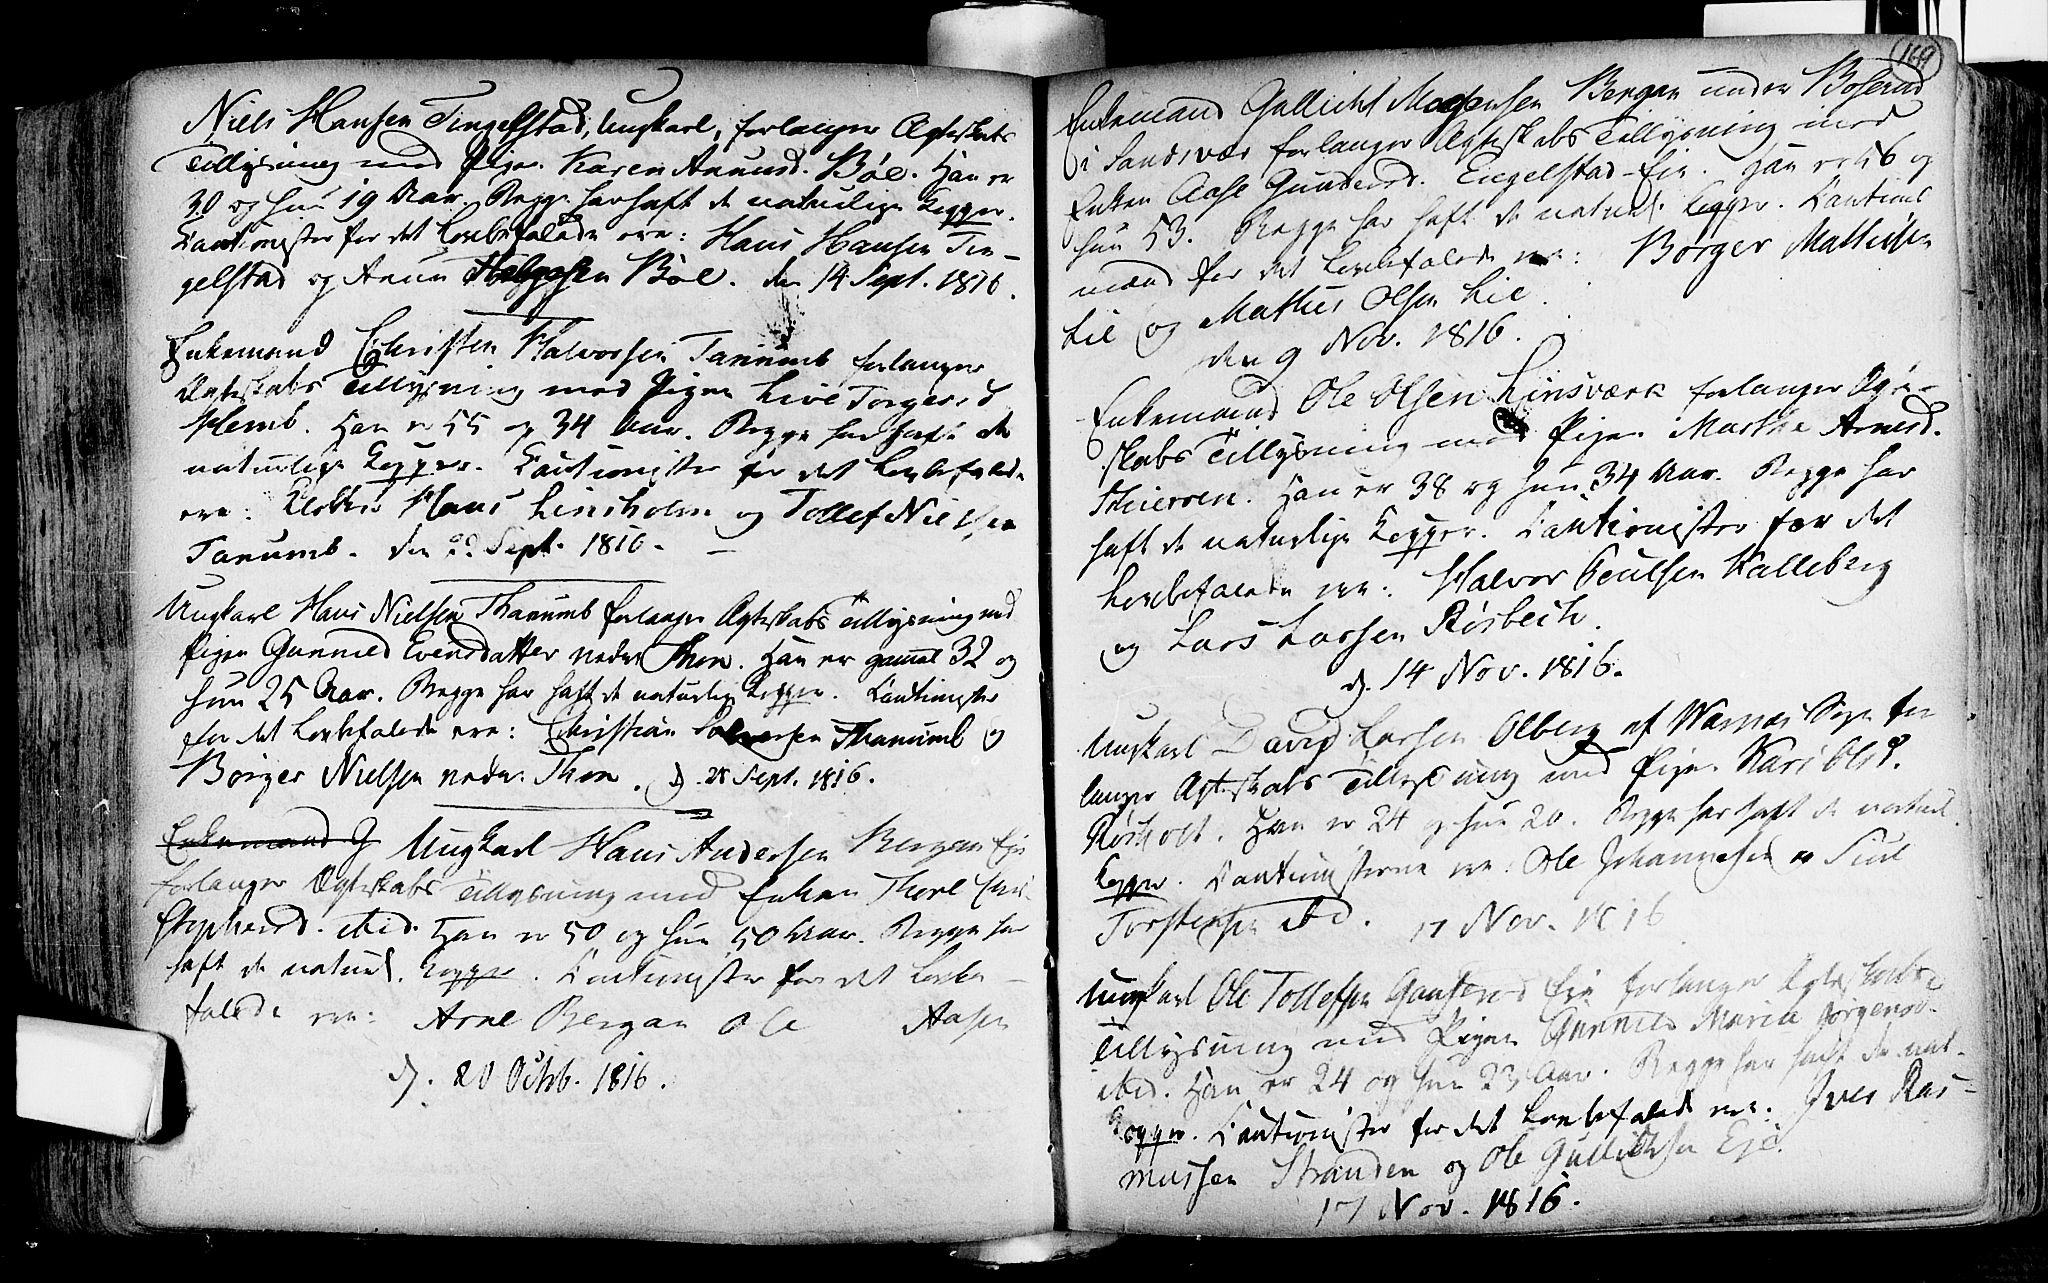 Niels Hansen Tingelstad, Ungkarl, forlanger Ægteskabs
Tillysning med Pigen Karen Anunsd. Bóe. Han er
30 og hun 19 Aar. Begge har haft de naturlige Kopper.
Cautionister for det Lovbefalede ere: Hans Hansen Tin-
gelstad og Anun Bóe. den 14 Sept. 1816.
Enkemand Christen Halvorsen Tanumb forlanger
Ægteskabs Tillysning med Pigen Live Torgersd
Hemb. Han er 55 og 34 Aar. Begge har haft de
naturlige Kopper. Cautionister for det Lovbefalede
ere: Klokker Hans Linsholm og Tollef Nielsen
Tanumb. den Sept. 1816.
Ungkarl Hans Nielsen Thanumb forlanger Ægteskabs Tillysning med
Pigen Gunnild Evensdatter neder Thon. Han er gammel 32 og
hun 25 Aar. Begge har haft de naturlig Kopper. Cautionister
for det Lovbefalede ere: Christian Thanumb og
Börger Nielsen neder Thon. d. 28 Sept. 1816.
Enkemand G Ungkarl Hans Andersen Bergan Eje
forlanger Ægteskabs Tillysning med Enken Thore Chri-
stophersd. ibid. Han er 50 og hun 50 Aar. Begge har
haft de naturl. Kopper. Cautionister for det Lovbe-
falede ere: Arne Bergan Ole Aasen
d. 20 Octb. 1816.
169
Enkemand Gullich Mogensen Bergan under Boserud
i Sandsvær forlanger Ægteskabs Tillysning med
Enken Aase Gundersd. Engelstad-Eie. Han er 56 og
hun 53. Begge har haft de naturl. Kopper. Cautions
mænd for det Lovbefalede ere: Börger Mathisen
Lie og Mathis Olsen Lie.
den 9 Nov. 1816.
Enkemand Ole Olsen Linsværk forlanger Ægte-
skabs Tillysning med Pigen Marthe Arnesd.
Skiersen. Han er 38 og hun 34 Aar. Begge har
haft de naturlige Kopper. Cautionister for det
Lovbefalede ere: Halvor Poulsen Kalleberg
og Lars Larsen Rósbech.
d. 14 Nov. 1816.
Ungkarl David Larsen Olberg af Warnæs Sogn for
langer Ægteskabs Tillysning med Pigen Kari Olsd.
Rósholt. Han er 24 og hun 20. Begge har haft de naturl.
Kopper. Cautionisterne ere: Ole Johannesen og
Torstensen ibid. 17 Nov. 1816
Ungkarl Ole Tollefsen Eje forlanger Ægteskabs
Tillysning med Pigen Gunnild Maria Jörgensd.
ibid. Han er 24 og hun 23 Aar. Begge har haft de nat.
Kopper. Cautionister for det Lovbefalede ere: Iver Ras-
mussen Stranden og Ole Gullichsen Eje.
17 Nov. 1816.